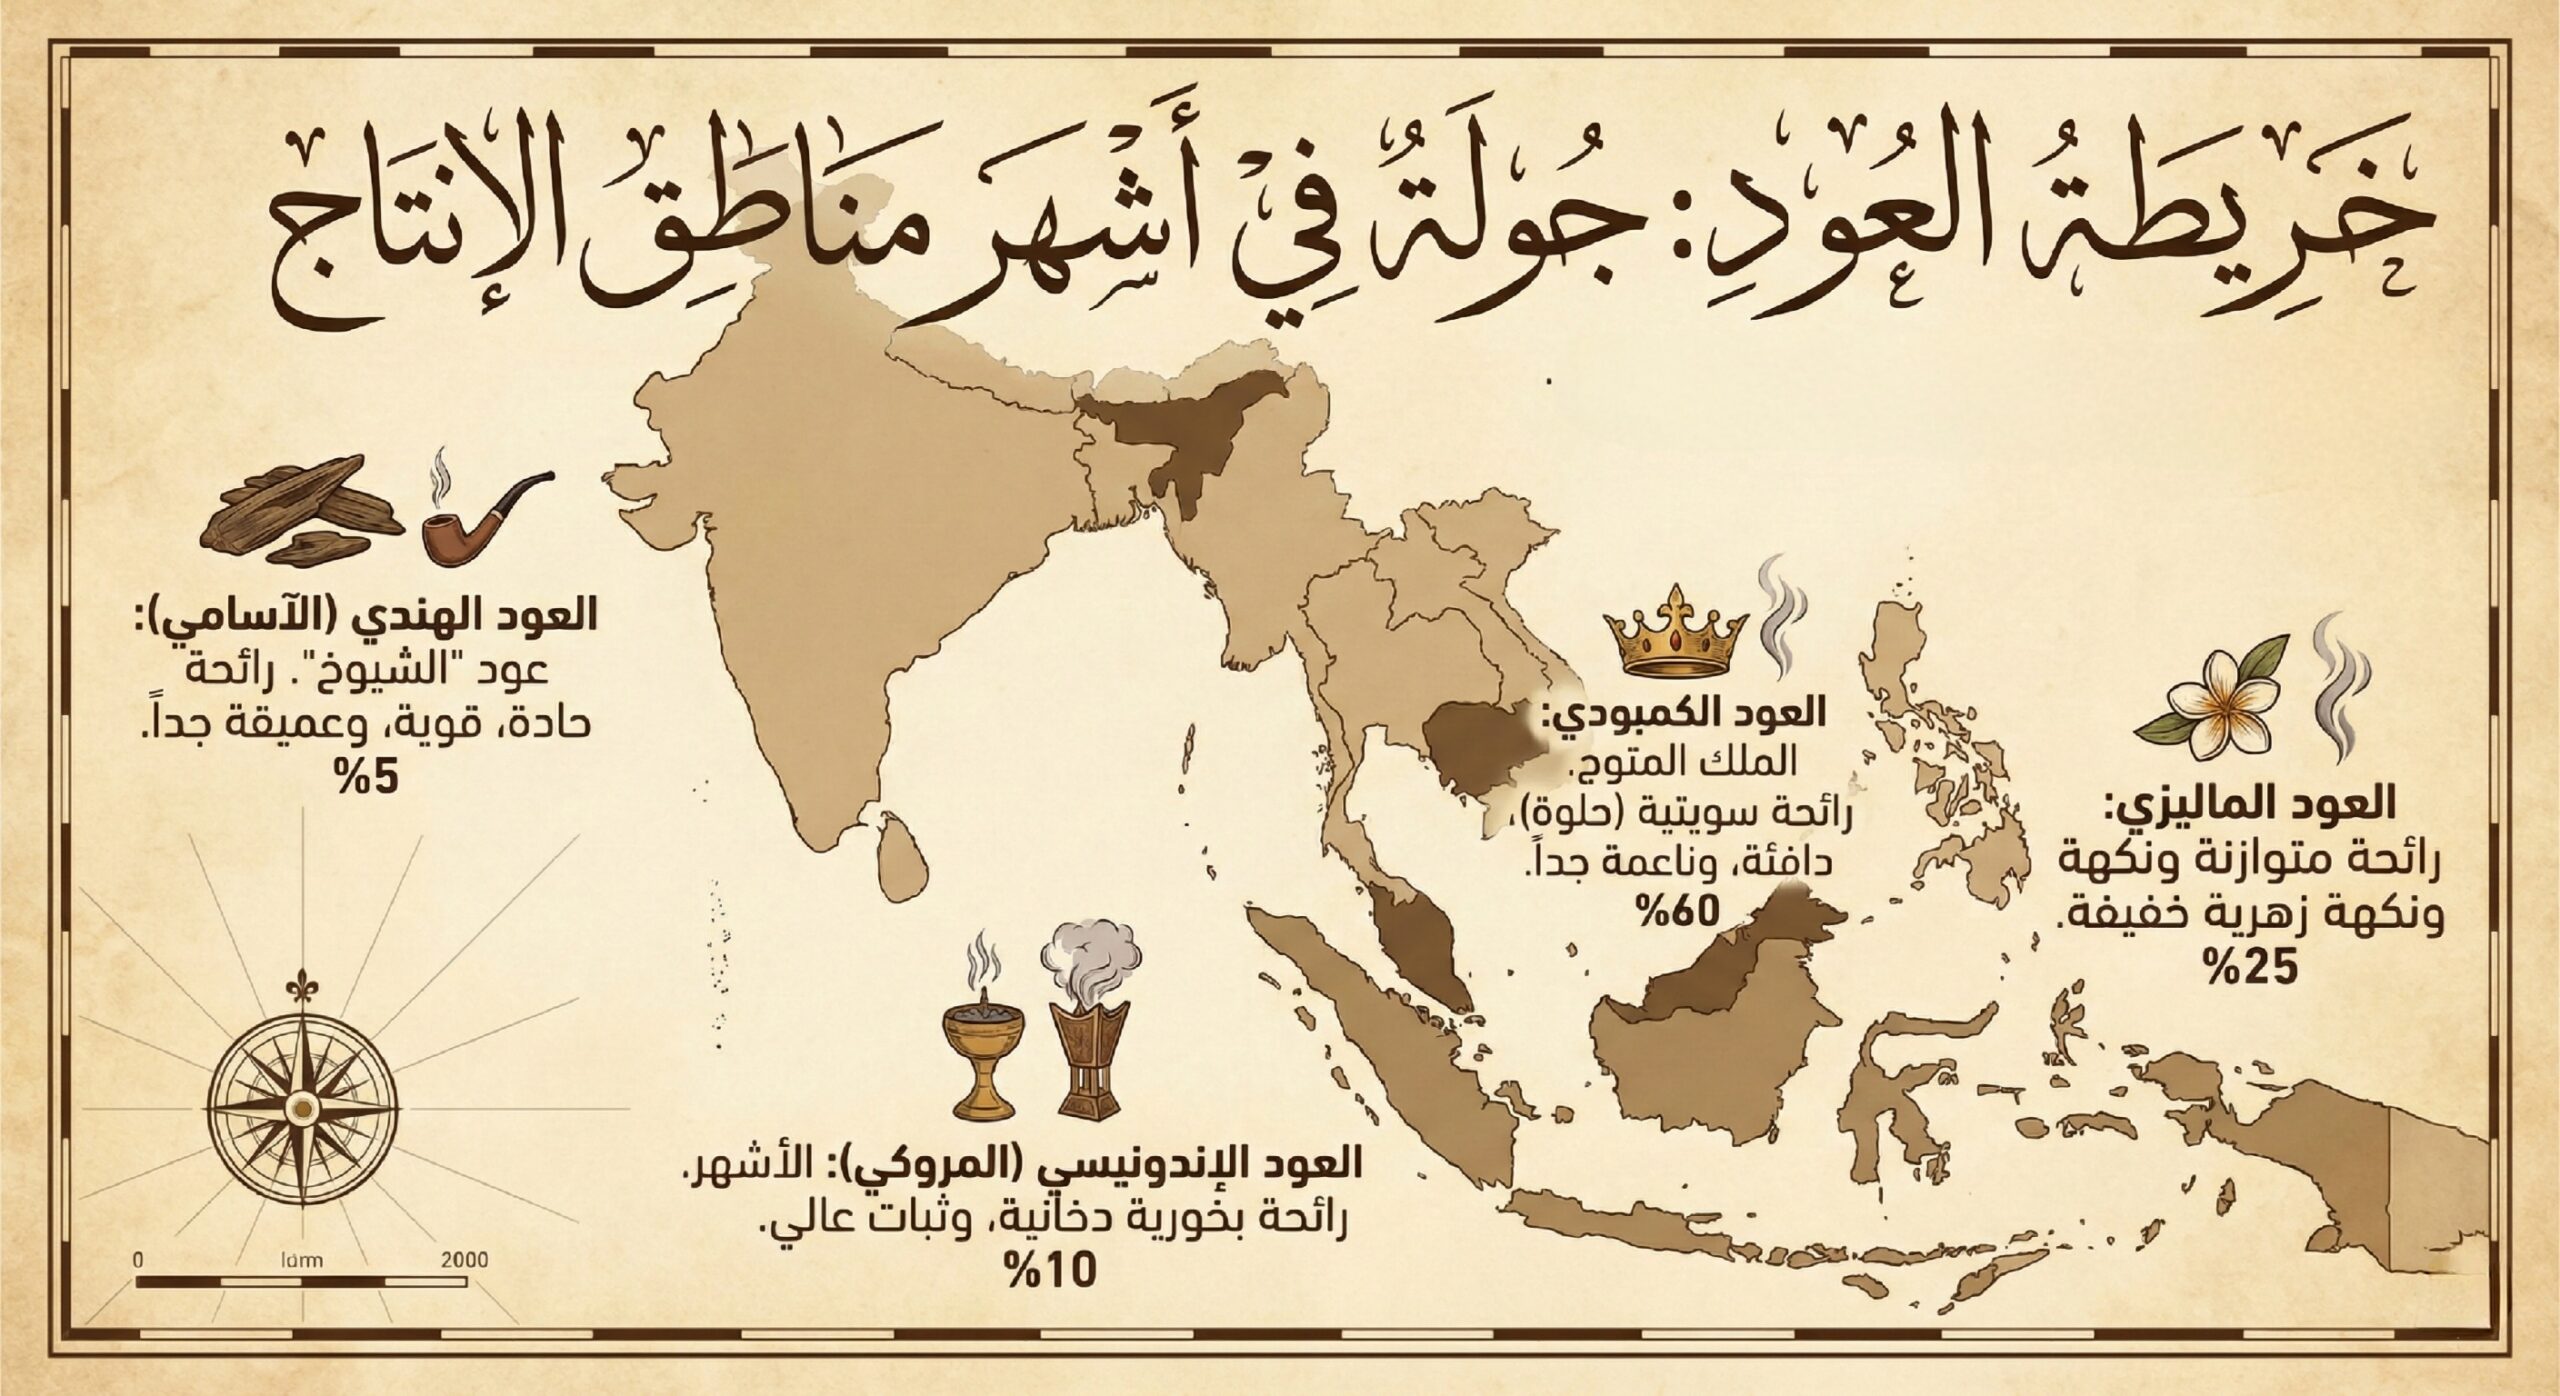 خَرِيطَةُ العُودِ: جُولَةٌ فِيْ أَشْهَرَ مَنَاطَِقِ الإنتَاج
العود الهندي (الآسامي):
عود "الشيوخ". رائحة
حادة، قوية، وعميقة جداً.
%5
العود الكمبودي:
الملك المتوج.
رائحة سويتية (حلوة)،
دافئة، وناعمة جداً.
%60
العود الماليزي:
رائحة متوازنة ونكهة
ونكهة زهرية خفيفة.
%25
العود الإندونيسي (المروكي): الأشهر.
رائحة بخورية دخانية، وثبات عالي.
%10
0 2000